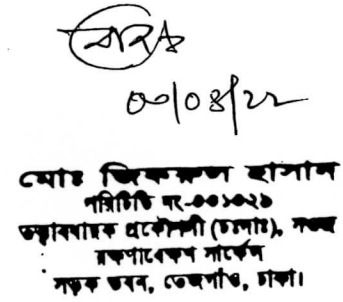 ০০/০৪/২২
মোঃ জিকরুল হাসান
পরিচিতি নং-০০১০২১
তত্ত্বাবধায়ক প্রকৌশলী (চঃদাঃ), সওজ
রক্ষণাবেক্ষণ সার্কেল
সড়ক ভবন, তেজগাঁও, ঢাকা।